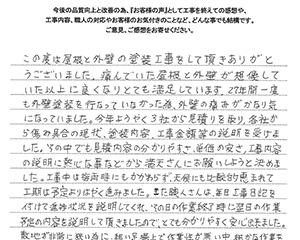 今後の品質向上と改善の為、『お客様の声』として工事を終えての感想や、
工事内容、職人の対応やお客様のお気付きのことなど、どんな事でも結構です。
ご意見、ご感想をお寄せください。
この度は屋根と外壁の塗装工事をして頂きありがと
うございました。痛んでいた屋根と外壁が想像して
いた以上に良くなりとても満足しています。27年間一度
も外壁塗装を行なっていなかった為、外壁の痛みがかなり気
になっていました。今年ようやく3社から見積りを取り、各社か
ら傷み具合の現状、塗装内容、工事金額等の説明を受けま
した。その中でも見積内容の分かりやすさ、単価の安さ、工事内容
の説明に熱心な事などから満天さんにお願いしようと決め
ました。工事中は梅雨時にもかかわらず、天候にも比較的恵まれて
工期は予定よりはやく進みました。また職人さんは、毎日工事日記を
付けて進捗状況を説明してくれ、その日の作業終了時に翌日の作業
予定の内容を説明して頂きましたので、とても分かりやすく安心出来ました。
敷地が非常に狭い為に、組い足場上で作業性が悪い中、細かな作業を